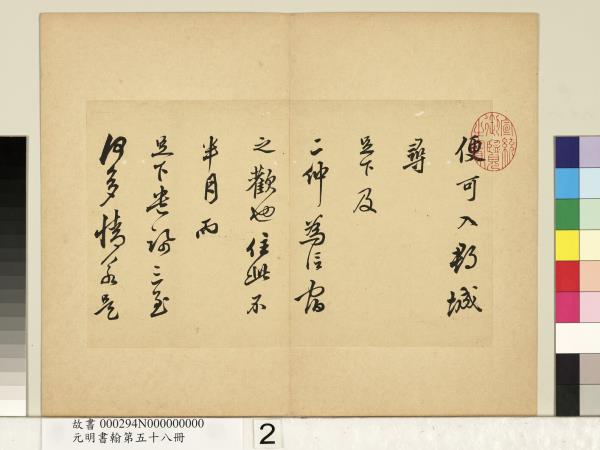 便可入郡城
尋
足下及
二仲為信宿
之歡也住此不
半月而
足下遣
多情
故書 000294N000000000
元明書翰第五十八冊
2